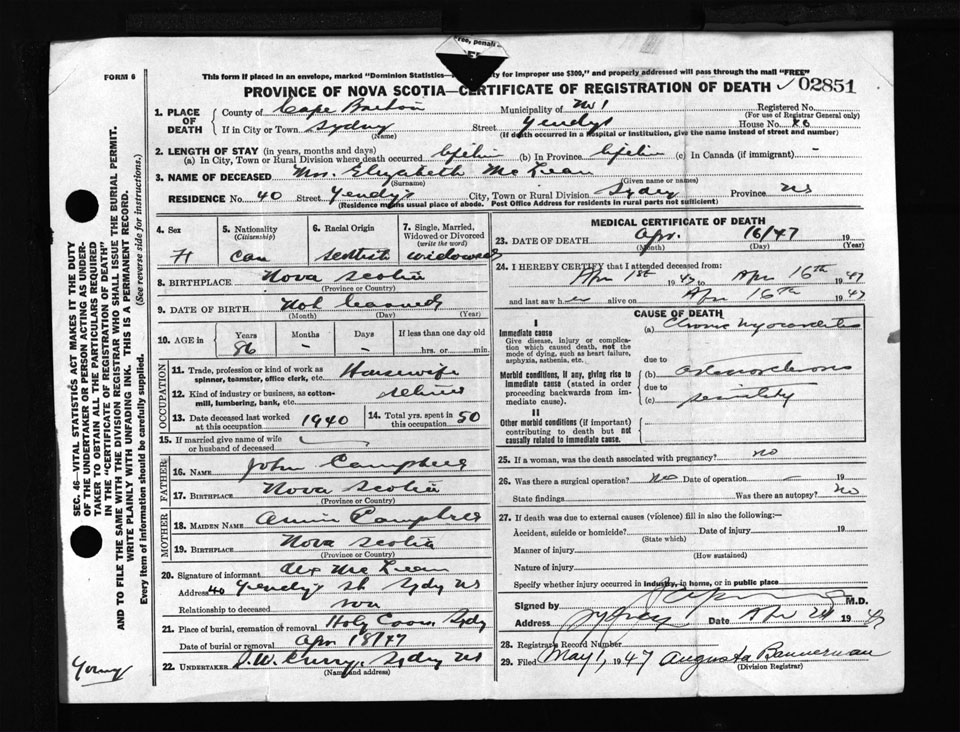 FORM 6
This form if placed in an envelope, marked "Dominion Statistics— for improper use $300," and properly addressed will pass through the mail "FREE"
PROVINCE OF NOVA SCOTIA—CERTIFICATE OF REGISTRATION OF DEATH 02851
1. PLACE OF DEATH County of Cape Breton Municipality of No 1 Registered No. (For use of Registrar General only)
If in City or Town Sydney (Name) Street House No. (If death occurred in a hospital or institution, give the name instead of street and number)
2. LENGTH OF STAY (in years, months and days)
(a) In City, Town or Rural Division where death occurred (b) In Province (c) In Canada (if immigrant) -
3. NAME OF DECEASED Mrs. Elizabeth McLean
(Surname) (Given name or names)
RESIDENCE No. 40 Street City, Town or Rural Division Sydney Province NS
(Residence means usual place of abode. Post Office Address for residents in rural parts not sufficient)
4. Sex F
5. Nationality (Citizenship) Can
6. Racial Origin Scottish
7. Single, Married, Widowed or Divorced (write the word) widowed
8. BIRTHPLACE Nova Scotia
(Province or Country)
9. DATE OF BIRTH Not learned
(Month) (Day) (Year)
10. AGE in Years 86 Months - Days - If less than one day old hrs. or min.
OCCUPATION
11. Trade, profession or kind of work as spinner, teamster, office clerk, etc. Housewife
12. Kind of industry or business, as cotton-mill, lumbering, bank, etc.
13. Date deceased last worked at this occupation 1940
14. Total yrs. spent in this occupation 50
15. If married give name of wife or husband of deceased
FATHER
16. NAME John Campbell
17. BIRTHPLACE Nova Scotia
(Province or Country)
MOTHER
18. MAIDEN NAME Annie Campbell
19. BIRTHPLACE Nova Scotia
(Province or Country)
20. Signature of informant Alex McLean
Address 40 St Sydney NS
Relationship to deceased son
21. Place of burial, cremation or removal Holy Cross, Sydy
Date of burial or removal Apr 18/47
22. UNDERTAKER J.W. Curry, Sydney NS
(Name and address)
MEDICAL CERTIFICATE OF DEATH
23. DATE OF DEATH Apr. 16/47 19
(Month) (Day) (Year)
24. I HEREBY CERTIFY that I attended deceased from:
Apr 1st 1947 to Apr 16th 1947
and last saw her alive on Apr 16th 1947
CAUSE OF DEATH
I
Immediate cause
Give disease, injury or complication which caused death, not the mode of dying, such as heart failure, asphyxia, asthenia, etc.
(a) Chronic myocarditis
due to
Morbid conditions, if any, giving rise to immediate cause (stated in order proceeding backwards from immediate cause).
(b) Arteriosclerosis
due to
(c) senility
II
Other morbid conditions (if important) contributing to death but not causally related to immediate cause.
25. If a woman, was the death associated with pregnancy? no
26. Was there a surgical operation? No Date of operation - 19
State findings Was there an autopsy? No
27. If death was due to external causes (violence) fill in also the following:—
Accident, suicide or homicide? Date of injury 19
(State which)
Manner of injury
(How sustained)
Nature of injury
Specify whether injury occurred in industry, in home, or in public place
Signed by M.D.
Address Sydney Date Apr 24 1947
28. Registrar's Record Number
29. Filed May 1, 1947 Augusta Bannerman
(Division Registrar)
SEC. 46—VITAL STATISTICS ACT MAKES IT THE DUTY
OF THE UNDERTAKER OR PERSON ACTING AS UNDER-
TAKER TO OBTAIN ALL THE PARTICULARS REQUIRED
IN THE "CERTIFICATE OF REGISTRATION OF DEATH"
AND TO FILE THE SAME WITH THE DIVISION REGISTRAR WHO SHALL ISSUE THE BURIAL PERMIT.
WRITE PLAINLY WITH UNFADING INK. THIS IS A PERMANENT RECORD.
Every item of information should be carefully supplied. (See reverse side for instructions.)